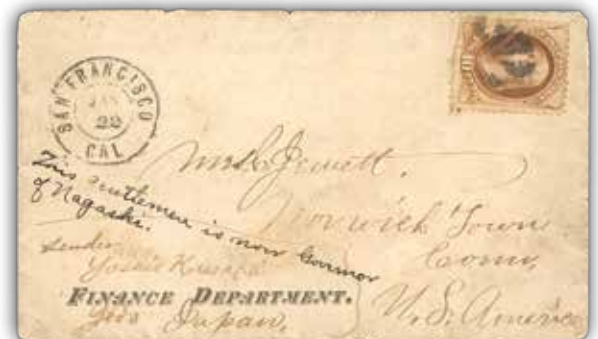 SAN FRANCISCO
JAN
22
CAL
Mrs Jewett.
Norwich Town
Conn,
U.S. America
This gentleman is now Governor
of Nagaski.
Sender
Yoshio Kusaka
FINANCE DEPARTMENT.
Yedo Japan,
10